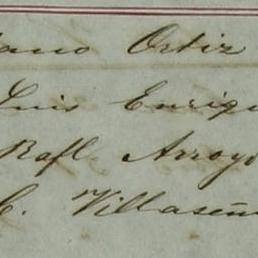 iano Ortiz
Luis Enriqu
Rafl. Arroyo
C. Villaseñ